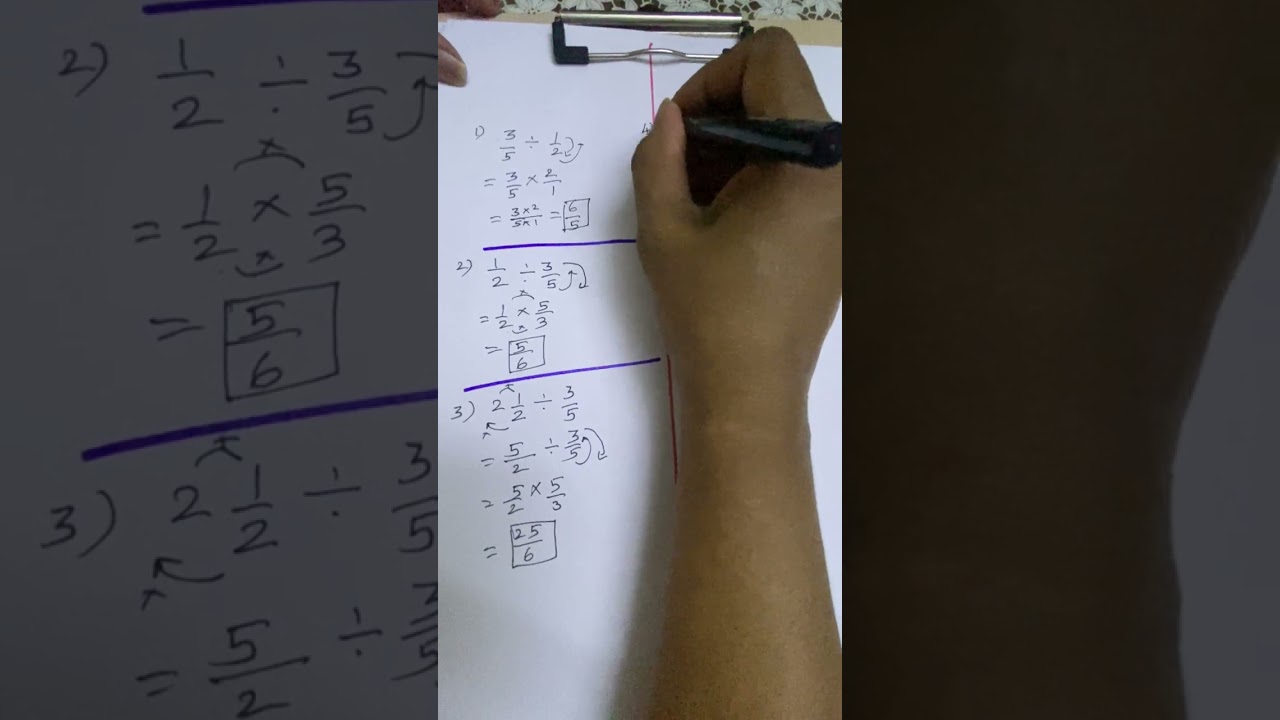 1) 3/5 ÷ 1/2
= 3/5 × 2/1
= 3×2/5×1 = 6/5
2) 1/2 ÷ 3/5
= 1/2 × 5/3
= 5/6
3) 2 1/2 ÷ 3/5
= 5/2 ÷ 3/5
= 5/2 × 5/3
= 25/6
2) 1/2 ÷ 3/5
= 1/2 × 5/3
= 5/6
3) 2 1/2 ÷ 3/5
= 5/2 ÷ 3/5